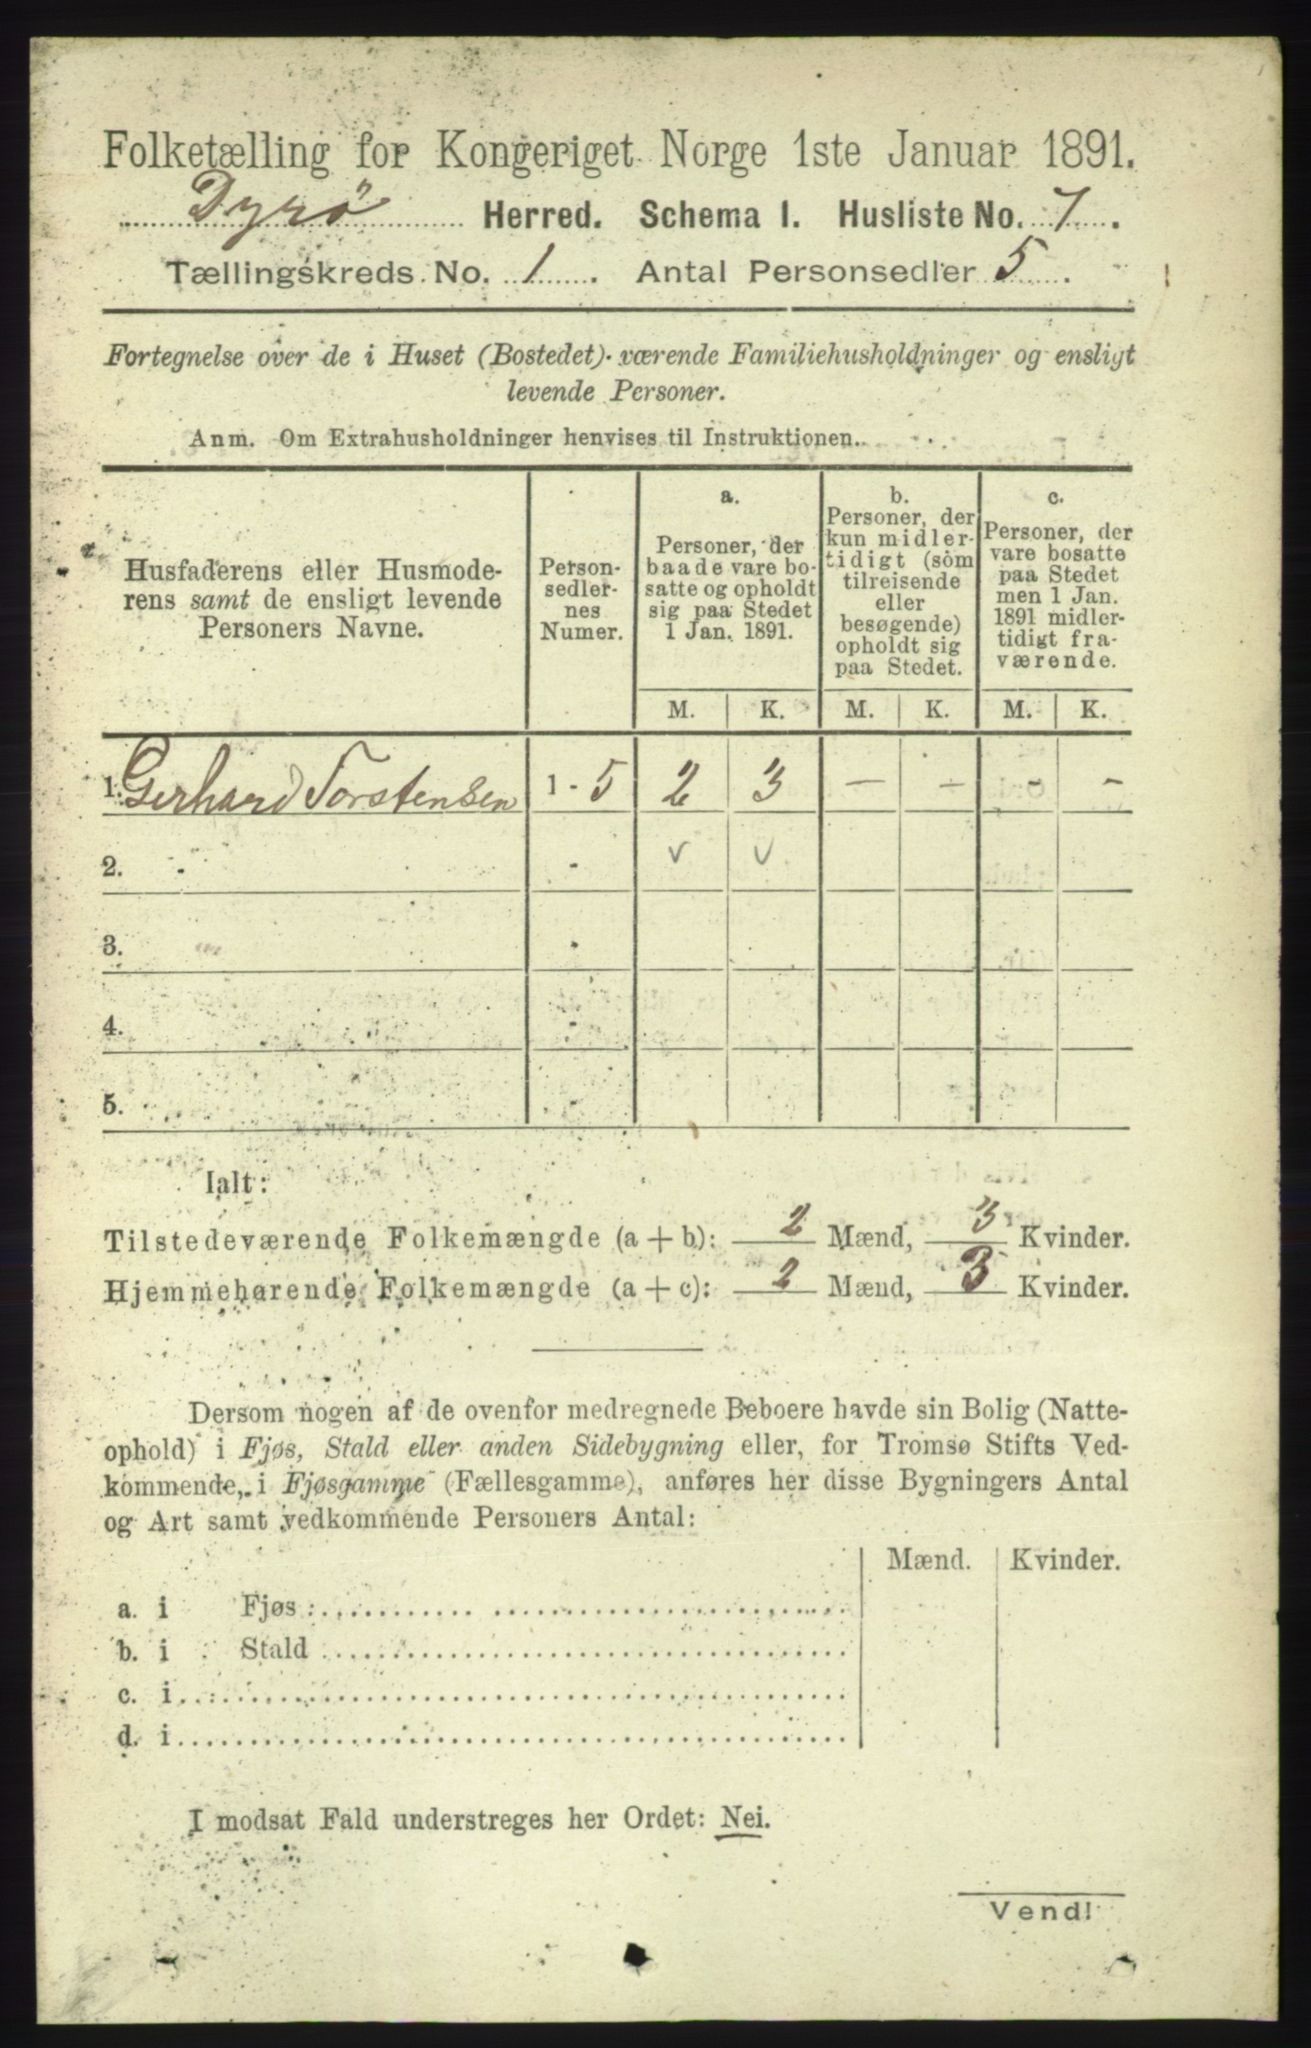 Folketælling for Kongeriget Norge 1ste Januar 1891.
Dyrø Herred. Schema I. Husliste No. 7.
Tællingskreds No. 1. Antal Personsedler 5.
Fortegnelse over de i Huset (Bostedet) værende Familiehusholdninger og ensligt
levende Personer.
Anm. Om Extrahusholdninger henvises til Instruktionen.
Husfaderens eller Husmode-
rens samt de ensligt levende
Personers Navne.
Person-
sedler-
nes
Numer.
a.
Personer, der
baade vare bo-
satte og opholdt
sig paa Stedet
1 Jan. 1891.
b.
Personer, der
kun midler-
tidigt (som
tilreisende
eller
besøgende)
opholdt sig
paa Stedet.
c.
Personer, der
vare bosatte
paa Stedet
men 1 Jan.
1891 midler-
tidigt fra-
værende.
M. K. M. K. M. K.
1. Gerhard Torstensen 1 - 5 2 3 - - - -
2. - v v
3. -
4. -
5.
Ialt:
Tilstedeværende Folkemængde (a + b): 2 Mænd, 3 Kvinder.
Hjemmehørende Folkemængde (a + c): 2 Mænd, 3 Kvinder.
Dersom nogen af de ovenfor medregnede Beboere havde sin Bolig (Natte-
ophold) i Fjøs, Stald eller anden Sidebygning eller, for Tromsø Stifts Ved-
kommende, i Fjøsgamme (Fællesgamme), anføres her disse Bygningers Antal
og Art samt vedkommende Personers Antal:
Mænd. Kvinder.
a. i Fjøs
b. i Stald
c. i
d. i
I modsat Fald understreges her Ordet: Nei.
Vend!